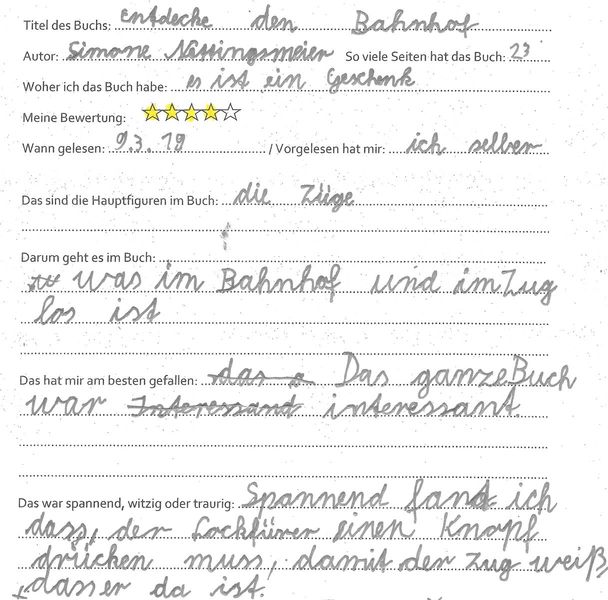 Titel des Buchs: entdecke den Bahnhof
Autor: Simone Nettingsmeier So viele Seiten hat das Buch: 23
Woher ich das Buch habe: es ist ein Geschenk
Meine Bewertung:
Wann gelesen: 9.3.19 / Vorgelesen hat mir: ich selber
Das sind die Hauptfiguren im Buch: die Züge
Darum geht es im Buch:
was im Bahnhof und im Zug
los ist
Das hat mir am besten gefallen: das Das ganze Buch
war Interessand interessant.
Das war spannend, witzig oder traurig: Spannend fand ich
dass, der Lockfürer einen Knopf
drücken muss, damit der Zug weiß,
dass er da ist.